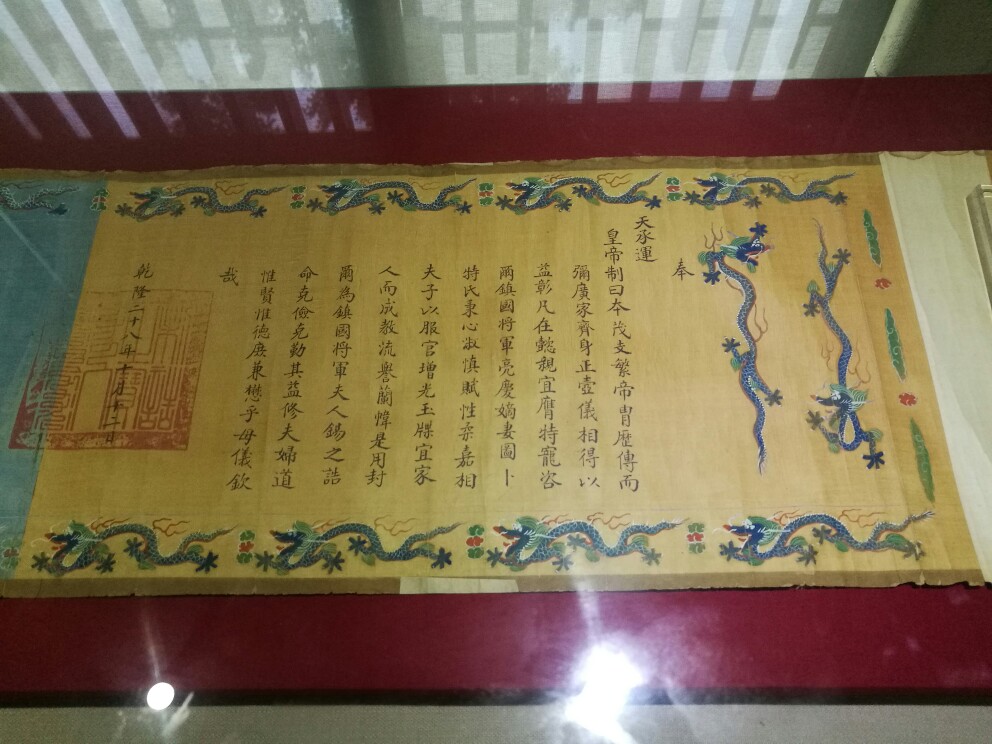 奉
天承運
皇帝制曰本茂支繁帝胄歷傳而
彌廣家齊身正壼儀相得以
益彰凡在懿親宜膺特寵咨
爾鎮國將軍亮慶嫡妻圖卜
特氏秉心淑慎賦性柔嘉相
夫子以服官增光玉牒宜家
人而成教流譽蘭幃是用封
爾為鎮國將軍夫人錫之誥
命克儉克勤其益修夫婦道
惟賢惟德庶兼懋乎母儀欽
哉
乾隆二十八年十月十二日